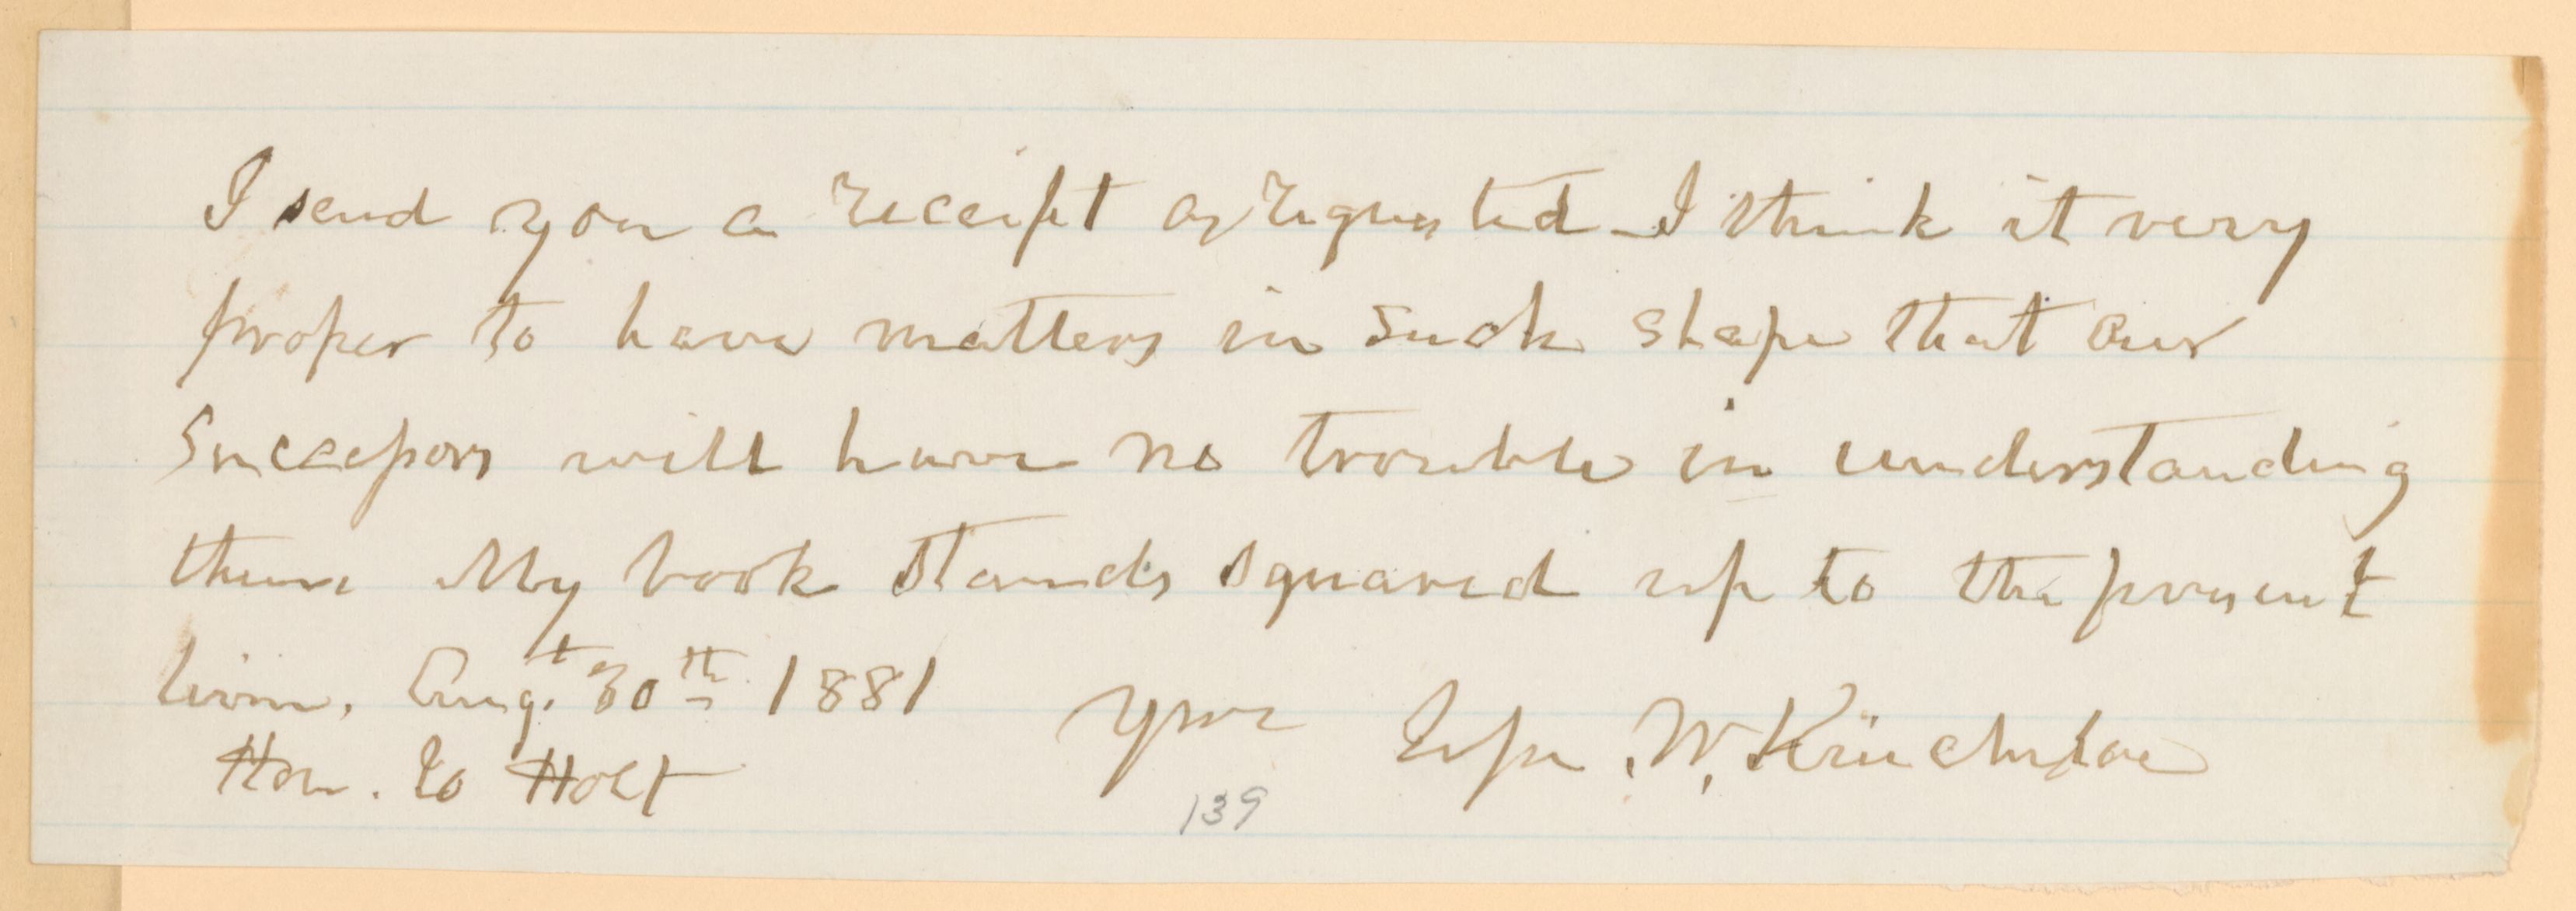 I send you a receipt as requested I think it very
proper to have matters in such shape that our
Successors will have no trouble in understanding
them My book stands squared up to the present
time. Augt 30th 1881 Yours W. Kincheloe
Hon. Jo Holt
139